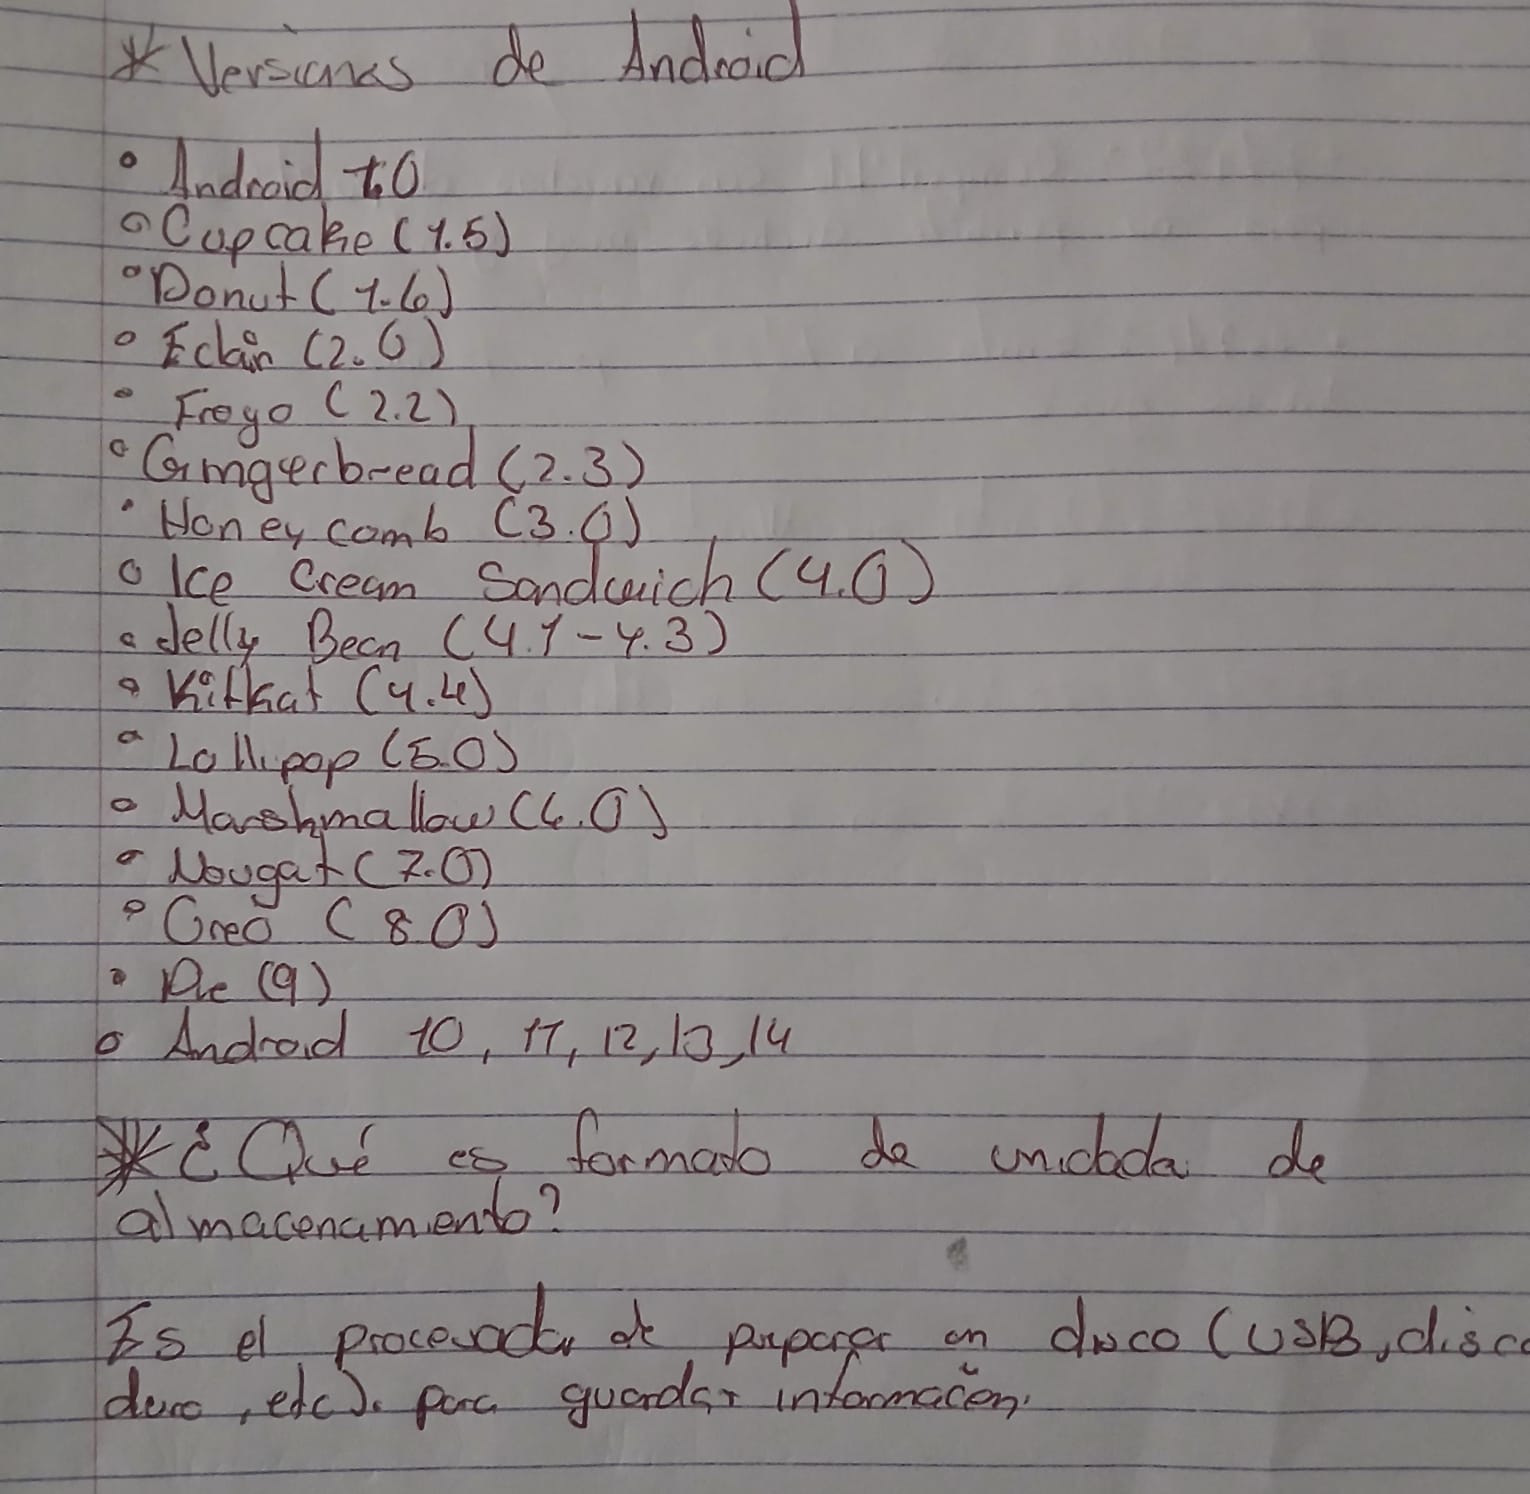 * Versiones de Android
• Android 1.0
• Cupcake (1.5)
• Donut (1.6)
• Eclair (2.0)
• Froyo (2.2)
• Gingerbread (2.3)
• Honeycomb (3.0)
• Ice Cream Sandwich (4.0)
• Jelly Bean (4.1-4.3)
• Kitkat (4.4)
• Lollipop (5.0)
• Marshmallow (6.0)
• Nougat (7.0)
• Oreo (8.0)
• Pie (9)
• Android 10, 11, 12, 13, 14
* ¿Qué es formato de unidada de
almacenamiento?
Es el procesador de preparar un disco (USB, disco
duro, etc). para guardar información.